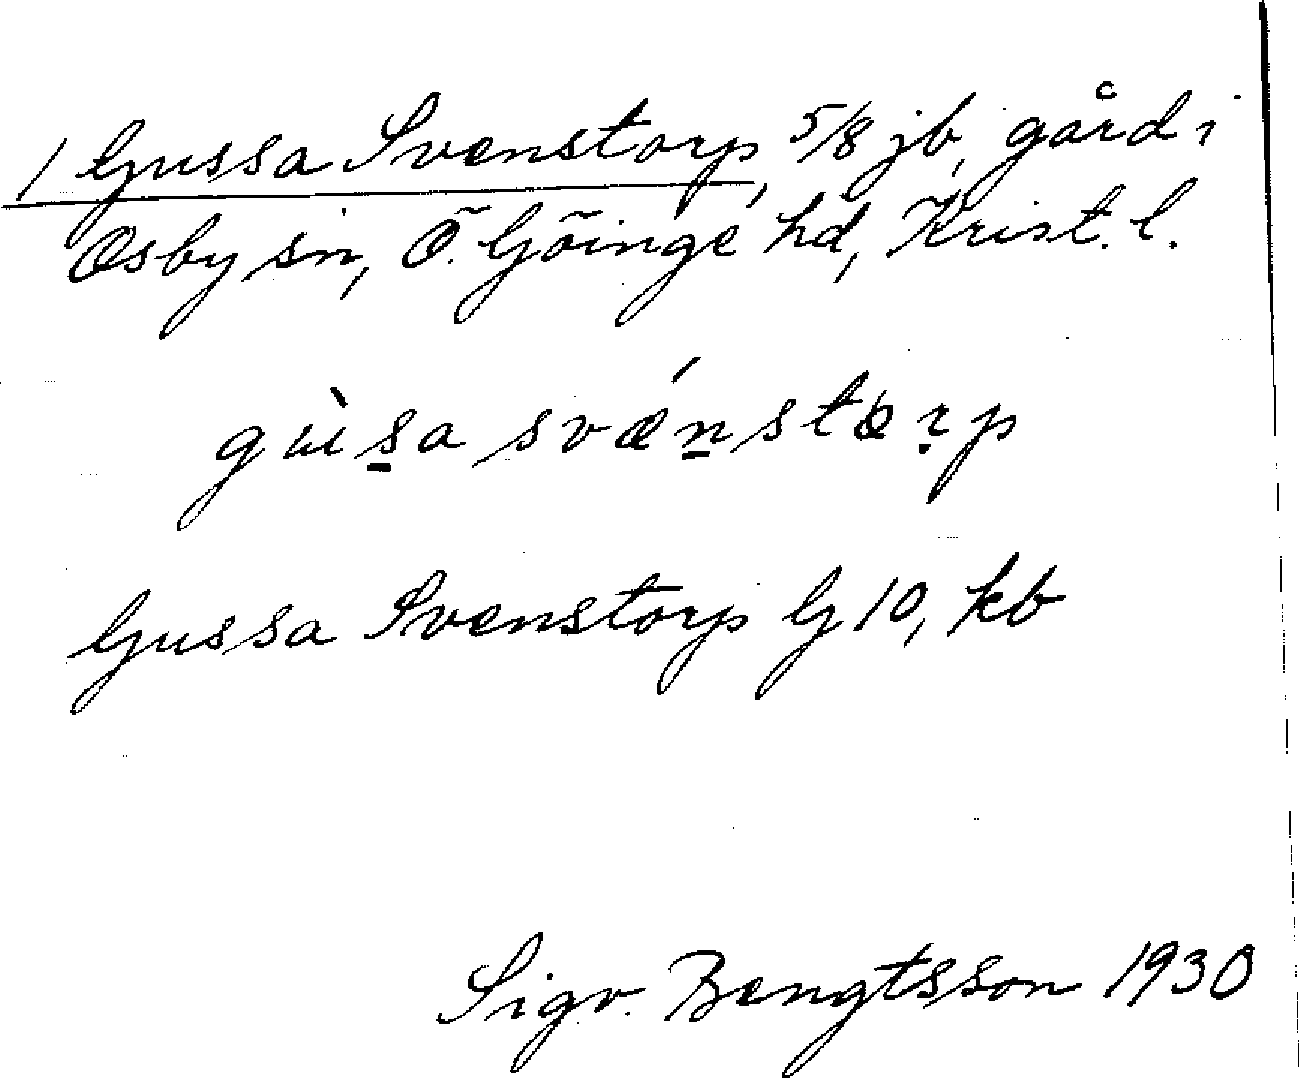 1 Gussa Svenstorp, 5/8 jb, gård i
Osby sn, Ö. Göinge hd, Krist. l.
gùs̲a svǽn̲stɵṛp
Gussa Svenstorp G 10, kb
Sigv. Bengtsson 1930